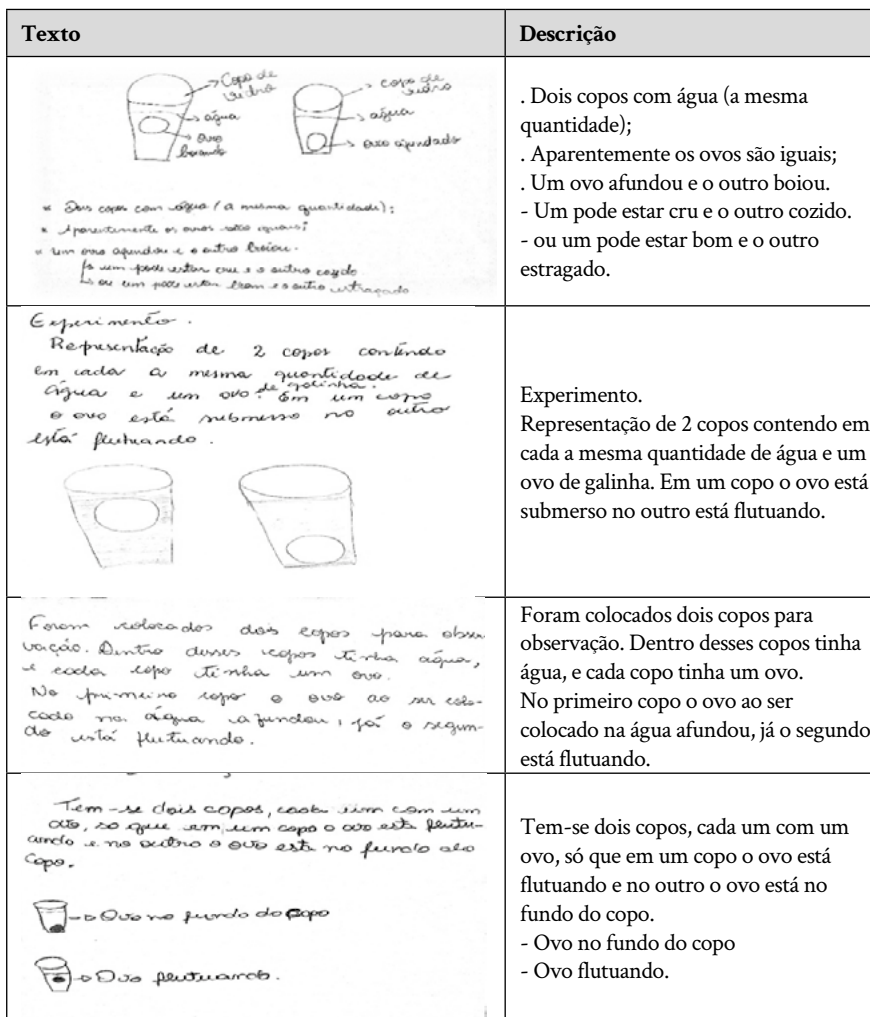 Texto
Descrição
Copo de
vidro
água
ovo
boiando
copo de
vidro
água
ovo afundado
* Dois copos com água (a mesma quantidade);
* Aparentemente os ovos são iguais;
* um ovo afundou e o outro boiou.
↳ um pode estar cru e o outro cozido
↳ ou um pode estar bom e o outro estragado
. Dois copos com água (a mesma
quantidade);
. Aparentemente os ovos são iguais;
. Um ovo afundou e o outro boiou.
- Um pode estar cru e o outro cozido.
- ou um pode estar bom e o outro
estragado.
Experimento.
Representação de 2 copos contendo
em cada a mesma quantidade de
água e um ovo de galinha. Em um copo
o ovo está submerso no outro
está flutuando.
Experimento.
Representação de 2 copos contendo em
cada a mesma quantidade de água e um
ovo de galinha. Em um copo o ovo está
submerso no outro está flutuando.
Foram colocados dois copos para obser
vação. Dentro desses copos tinha água,
e cada copo tinha um ovo.
No primeiro copo o ovo ao ser colo-
cado na água afundou, já o segun-
do está flutuando.
Foram colocados dois copos para
observação. Dentro desses copos tinha
água, e cada copo tinha um ovo.
No primeiro copo o ovo ao ser
colocado na água afundou, já o segundo
está flutuando.
Tem-se dois copos, cada um com um
ovo, so que em um copo o ovo está flutu-
ando e no outro o ovo está no fundo do
copo.
Ovo no fundo do copo
Ovo flutuando.
Tem-se dois copos, cada um com um
ovo, só que em um copo o ovo está
flutuando e no outro o ovo está no
fundo do copo.
- Ovo no fundo do copo
- Ovo flutuando.